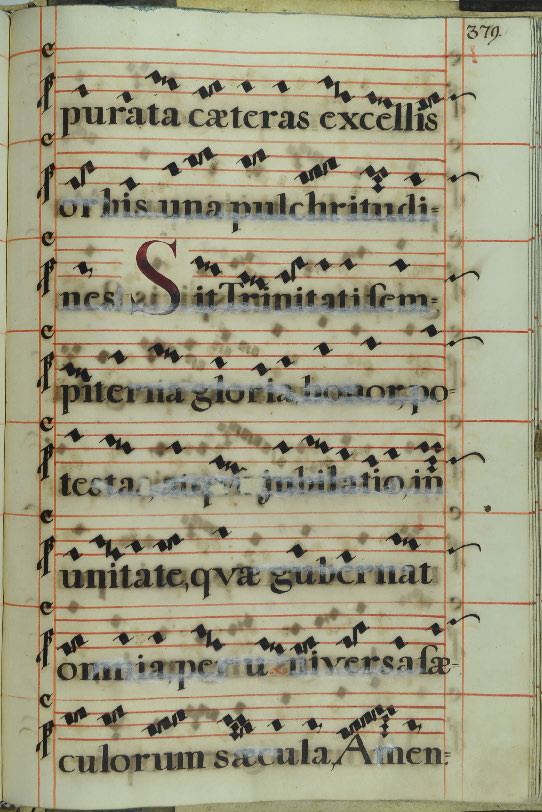 379.
purata cæteras excellis
orbis una pulchritudi=
nes. Sit Trinitati sem=
piterna gloria, honor, po=
testas, atqve jubilatio, in
unitate, qvæ gubernat
omnia, per universa sæ-
culorum sæcula, Amen=